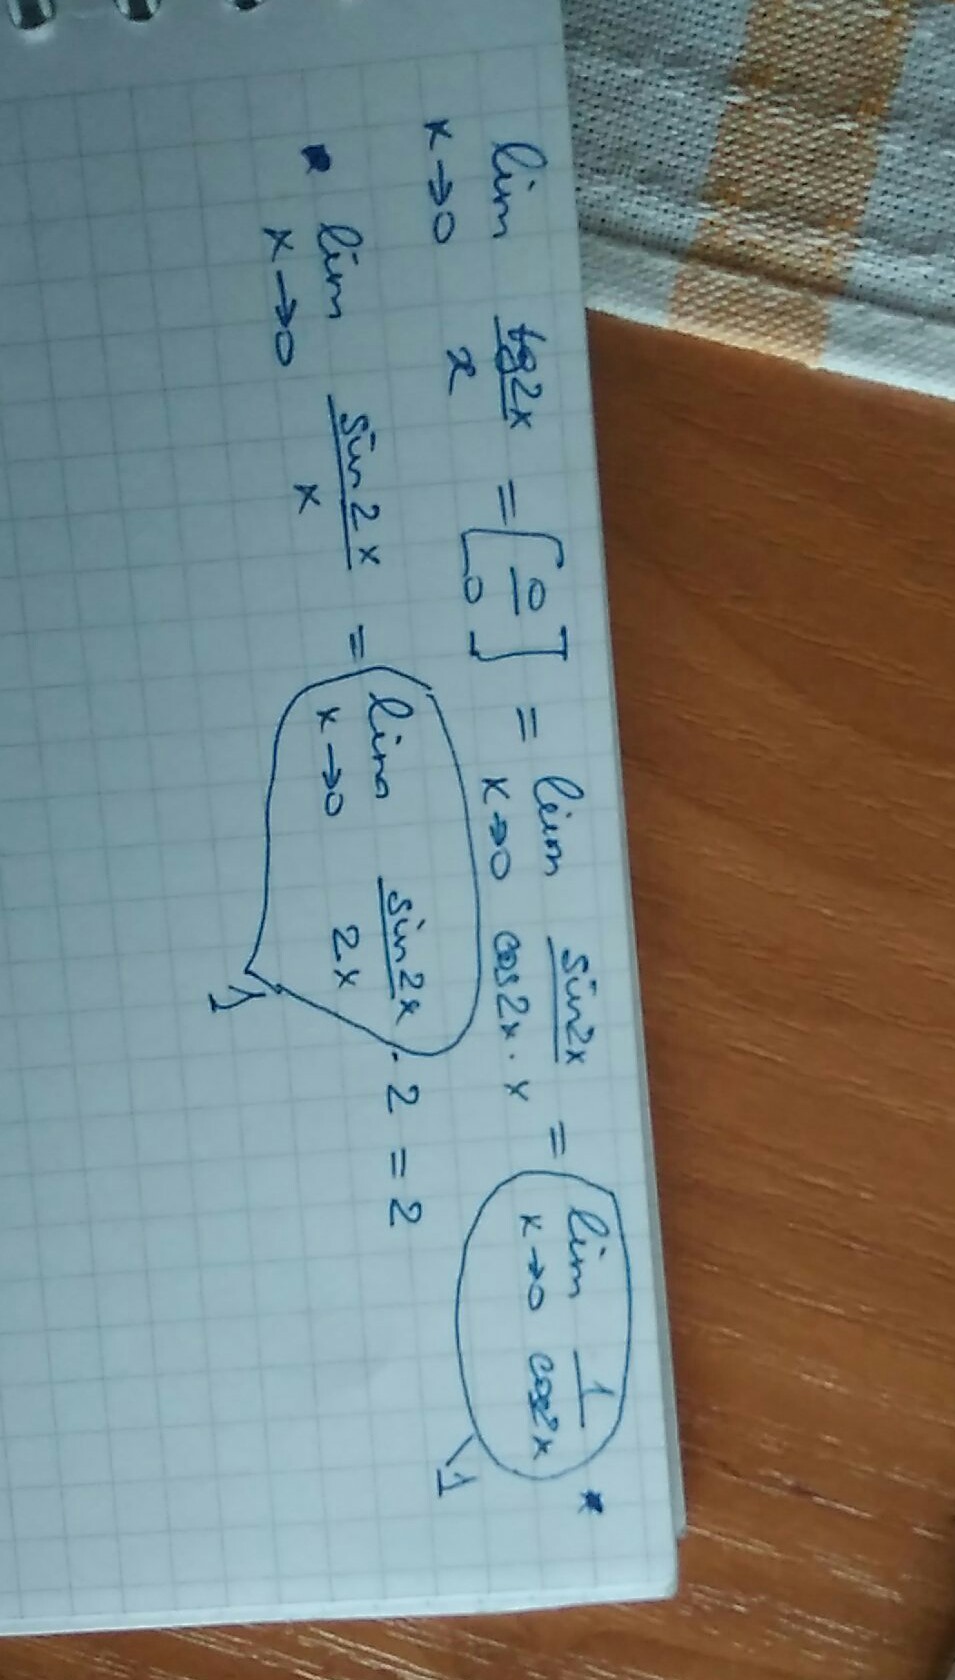 lim x→0 tg2x/x = [0/0] = lim x→0 sin2x/(cos2x · x) = lim x→0 1/cos2x · 1
· lim x→0 sin2x/x = lim x→0 sin2x/2x · 2 = 2
1